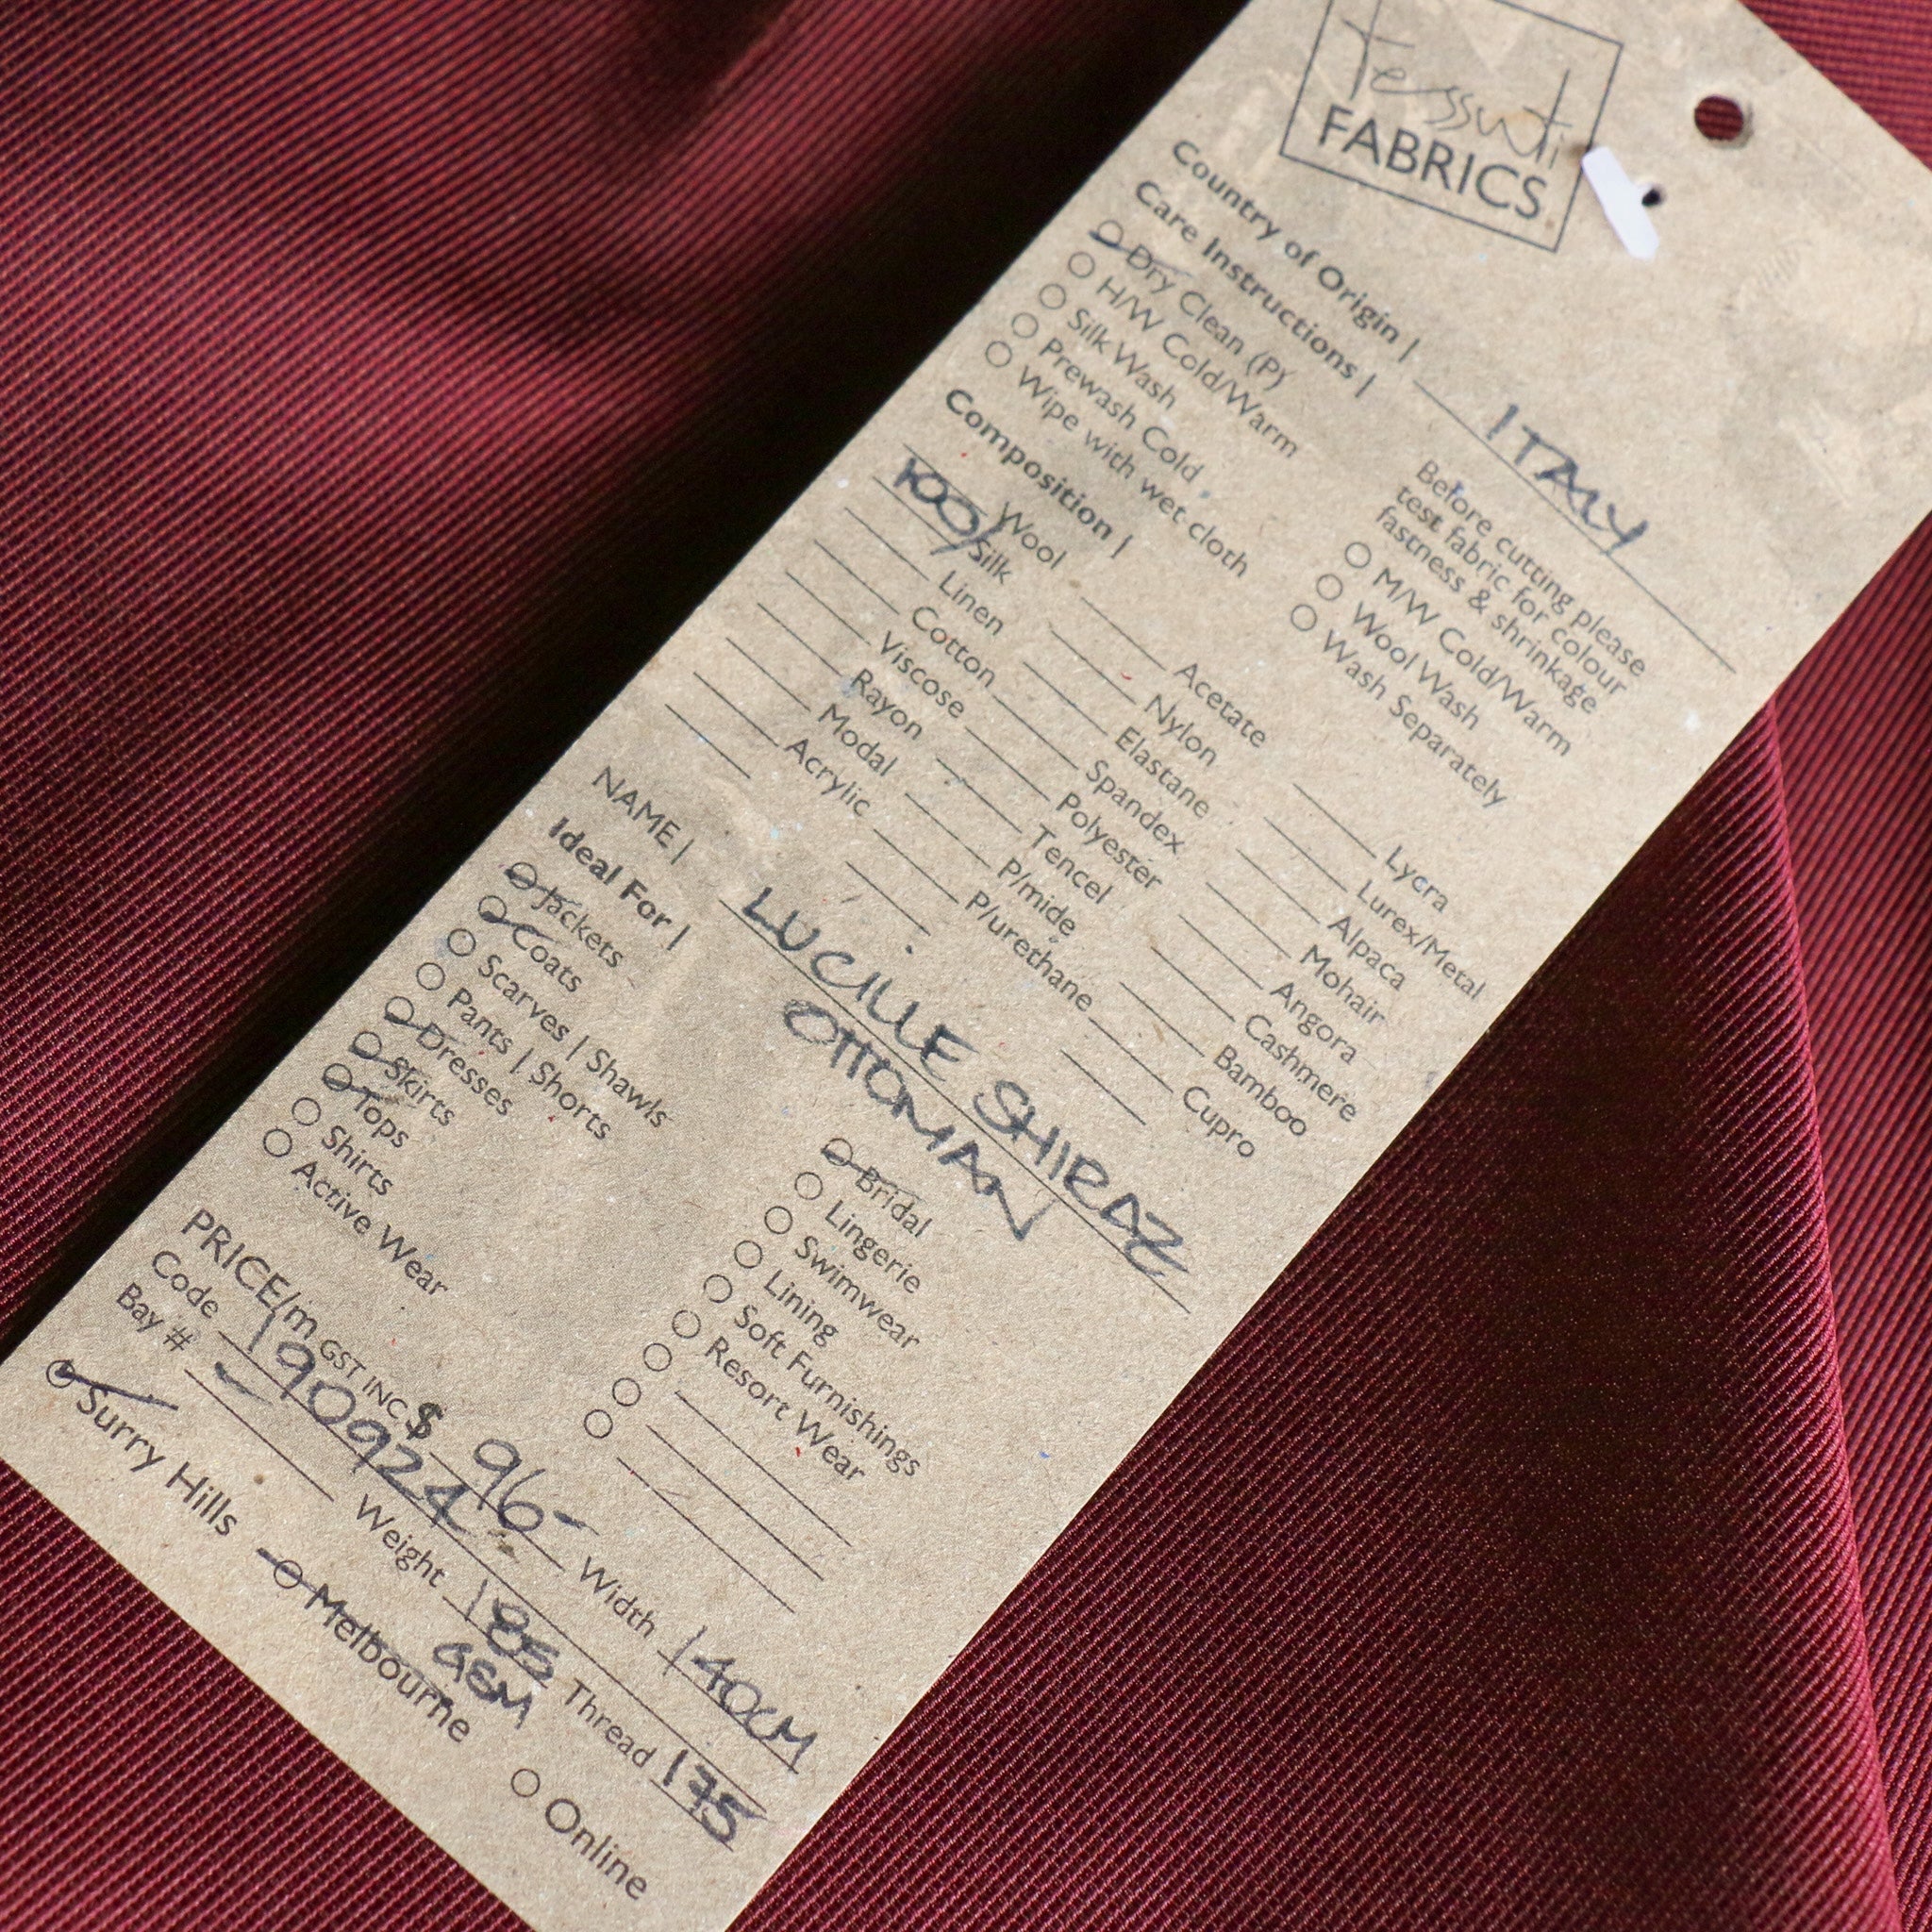 tessuti
FABRICS
Country of Origin | ITALY
Care Instructions |
Dry Clean (P)
H/W Cold/Warm
Silk Wash
Prewash Cold
Wipe with wet cloth
Before cutting please
test fabric for colour
fastness & shrinkage
M/W Cold/Warm
Wool Wash
Wash Separately
Composition |
Wool
100/ Silk
Linen
Cotton
Viscose
Rayon
Modal
Acrylic
Acetate
Nylon
Elastane
Spandex
Polyester
Tencel
P/mide
P/urethane
Lycra
Lurex/Metal
Alpaca
Mohair
Angora
Cashmere
Bamboo
Cupro
NAME | LUCILLE SHIRAZ
OTTOMAN
Ideal For |
Jackets
Coats
Scarves | Shawls
Pants | Shorts
Dresses
Skirts
Tops
Shirts
Active Wear
Bridal
Lingerie
Swimwear
Lining
Soft Furnishings
Resort Wear
PRICE/m GST INC $ 96- Width 140CM
Code 190924 Weight 185 GSM Thread 175
Bay # –
Surry Hills Melbourne Online